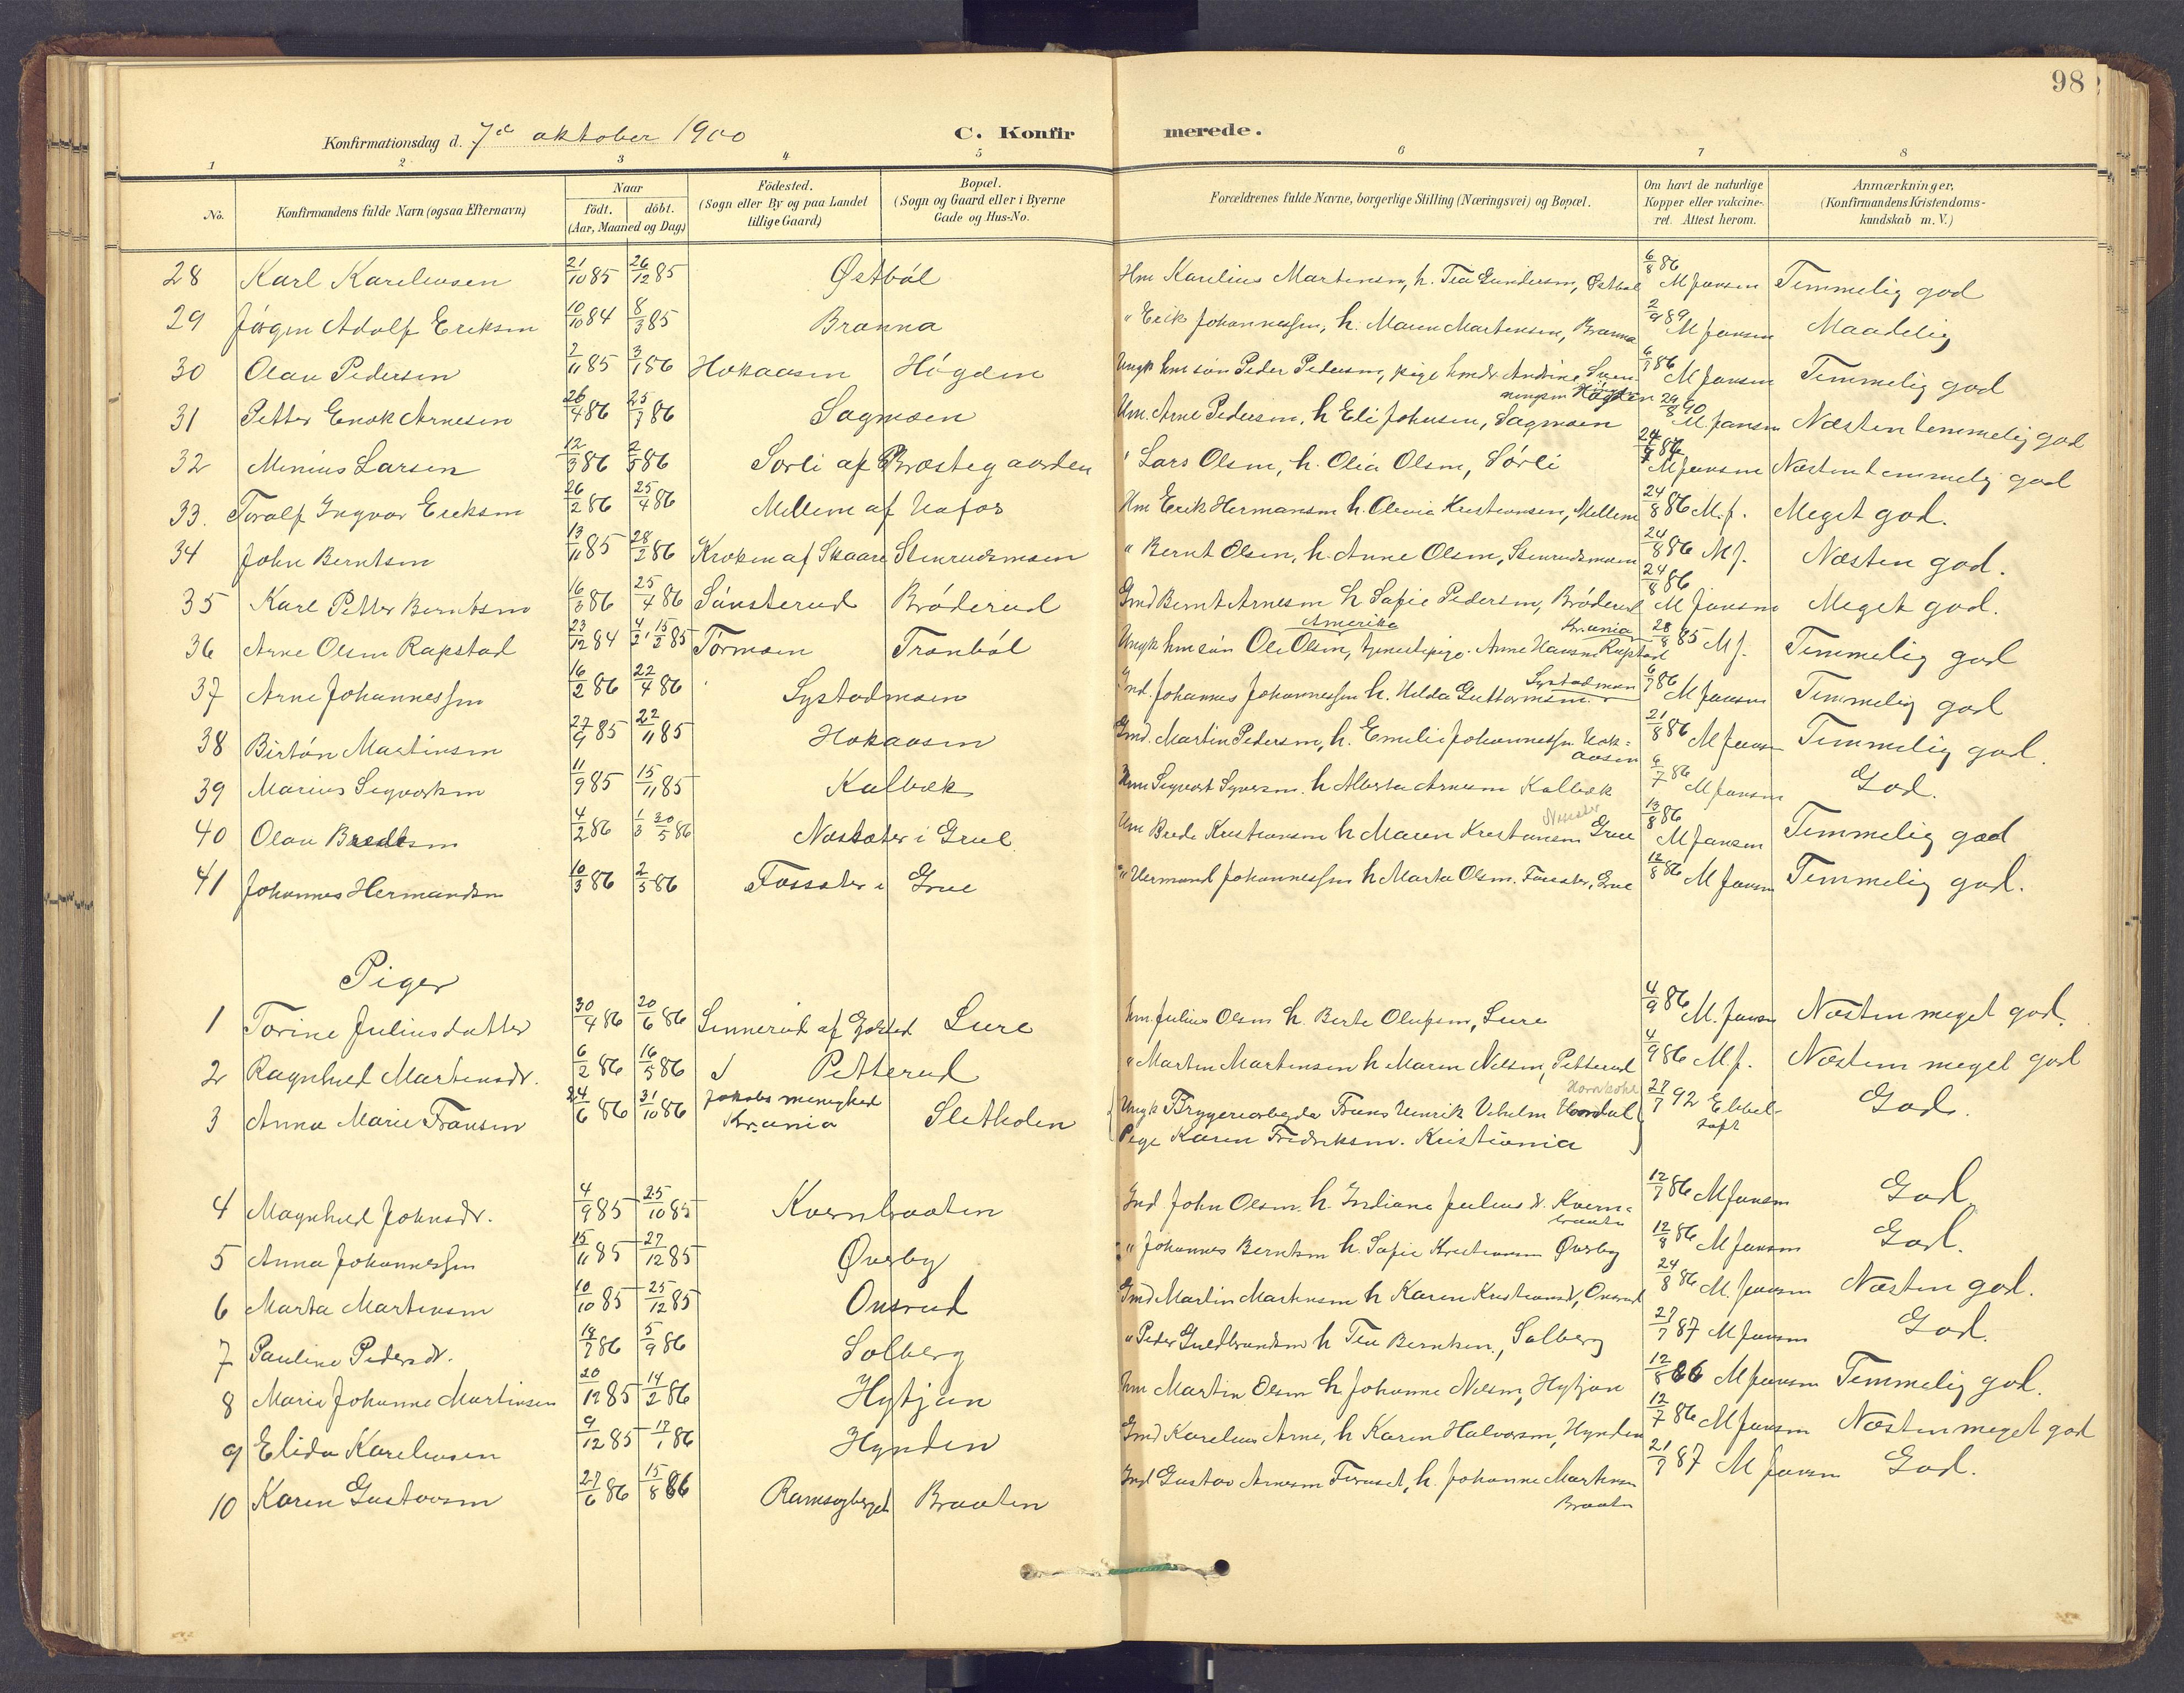 98
Konfirmationsdag d. 7de oktober 1900
C. Konfirmerede.
1 2 3 4 5 6 7 8
No.
Konfirmandens fulde Navn (ogsaa Efternavn)
Naar
födt. döbt.
(Aar, Maaned og Dag)
Födested.
(Sogn eller By og paa Landet
tillige Gaard)
Bopæl.
(Sogn og Gaard eller i Byerne
Gade og Hus-No.
Forældrenes fulde Navne, borgerlige Stilling (Næringsvei) og Bopæl.
Om havt de naturlige
Kopper eller vakcine-
ret. Attest herom.
Anmærkninger,
(Konfirmandens Kristendoms-
kundskab m. V.)
28 Karl Kareliusen 21/10 85 26/12 85 Østböl Hm Karelius Martinsen, h. Tea Gundersen, Østböl 6/8 86 M Jansen Temmelig god
29 Jörgen Adolf Eriksen 10/10 84 8/3 85 Branna " Erik Johannessen, h. Maren Martensen, Branna 2/9 89 M Jansen Maadelig
30 Olau Pedersen 2/11 85 3/1 86 Hokaasen Högden Ungk hmsön Peder Pedersen, pige hmdr Andrine Svenningsen Högden 6/7 86 M Jansen Temmelig god
31 Petter Enok Arnesen 26/4 86 25/7 86 Sagmoen Hm. Arne Pedersen, h Eli Johnsen, Sagmoen 29/8 90 M. Jansen Næsten temmelig god
32 Minius Larsen 12/3 86 2/5 86 Sörli af Præstegaarden " Lars Olsen, h. Olia Olsen, Sörli 24/8 86 M Jansen Næsten temmelig god
33. Toralf Ingvar Eriksen 26/2 86 25/4 86 Mellem af Nafos Hm Erik Hermansen h. Olevia Kristiansen, Mellem 24/8 86 M. J. Meget god.
34 John Berntsen 13/11 85 28/2 86 Kroken af Skaare Stenrudsmoen " Bernt Olsen, h. Anne Olsen, Stenrudsmoen 24/8 86 M J. Næsten god.
35 Karl Petter Berntsen 16/3 86 25/4 86 Sönsterud Bröderud Gmd Bernt Arnesen h Sofie Pedersen, Bröderud 24/8 86 M Jansen Meget god.
36 Arne Olsen Rapstad 23/12 84 4/2, 15/2 85 Tormoen Tranböl Ungk hmsön Ole Olsen, Amerika tjenestepige Anne Hansen Rapstad Kr.ania 28/8 85 M J. Temmelig god
37 Arne Johannessen 16/2 86 22/4 86 Systadmoen Ind. Johannes Johannessen h. Hilda Guttormsen. Systadmoen 6/7 86 M Jansen Temmelig god
38 Birton Martinsen 27/9 85 22/11 85 Hokaasen Gmd. Martin Pedersen, h. Emilie Johannessen Hokaasen 21/8 86 M Jansen Temmelig god.
39 Marius Sigvartsen 11/9 85 15/11 85 Kalbæk Hm Sigvart Syversen. h Alberta Arnesen Kalbæk 6/7 86 M Jansen God.
40 Olau Bredesen 4/2 86 1/3 30/5 86 Næssæter i Grue Hm Brede Kristiansen h Maren Kristiansen Grue 13/8 86 M Jansen Temmelig god
41 Johannes Hermandsen 10/3 86 2/5 86 Fossæter i Grue " Hermand Johannessen h Marta Olsen. Fossæter, Grue 12/8 86 M Jansen Temmelig god.
Piger
1 Torine Juliusdatter 30/4 86 20/6 86 Linnerud af Lure hm. Julius Olsen h. Berte Olufsen, Lure 4/9 86 M. Jansen Næsten meget god.
2 Ragnhild Martinsdr. 6/2 86 16/5 86 Petterud " Martin Martinsen h Maren Nilsen, Petterud 4/9 86 M J. Næsten meget god
3 Anna Marie Fransen 24/6 86 31/10 86 Jakobs menighed Kr.ania Sletholen Ungk Bryggeriarbejder Frans Henrik Vilhelm
Pige Karen Fredriksen. Kristiania 27/7 92 Ebbeltoft God.
4 Magnhild Johnsdr. 4/9 85 25/10 85 Kvernbraaten Ind. John Olsen. h. Indiana Juliusdr. Kvernbraaten 12/7 86 M Jansen God
5 Anna Johannessen 15/11 85 27/12 85 Øverby " Johannes Berntsen h. Sofie Kristiansen Øverby 12/8 86 M Jansen God.
6 Marta Martinsen 10/10 85 25/12 85 Onsrud Gmd Martin Martinsen h Karen Kristiansd, Onsrud 24/8 86 M. Jansen Næsten god.
7 Pauline Pedersdr. 19/7 86 5/9 86 Solberg " Peder Guldbrandsen h Tea Berntsen, Solberg 27/7 87 M Jansen God.
8 Marie Johanne Martinsen 20/12 85 14/2 86 Hytjan Hm Martin Olsen h Johanne Nilsen, Hytjan 12/8 86 M Jansen Temmelig god.
9 Elida Kareliusen 9/12 85 17/1 86 Hynden Gmd Karelius Arne, h Karen Halvorsen, Hynden 12/7 86 M Jansen Næsten meget god
10 Karen Gustavsen 27/6 86 15/8 86 Ramsogberget Braaten Ind Gustav Arnesen Furuset, h. Johanne Martinsen Braaten 21/7 87 M Jansen God.